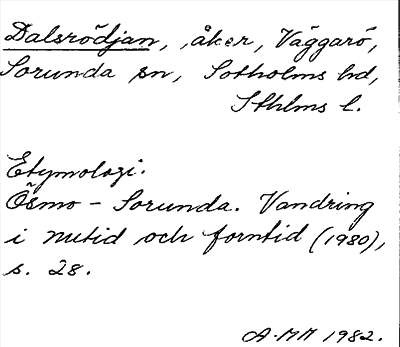 Dalsrödjan, åker, Väggarö,
Sorunda sn, Sotholms hd,
Sthlms l.
Etymologi.
Ösmo - Sorunda. Vandring
i nutid och forntid (1980),
s. 28.
A.MM 1982.